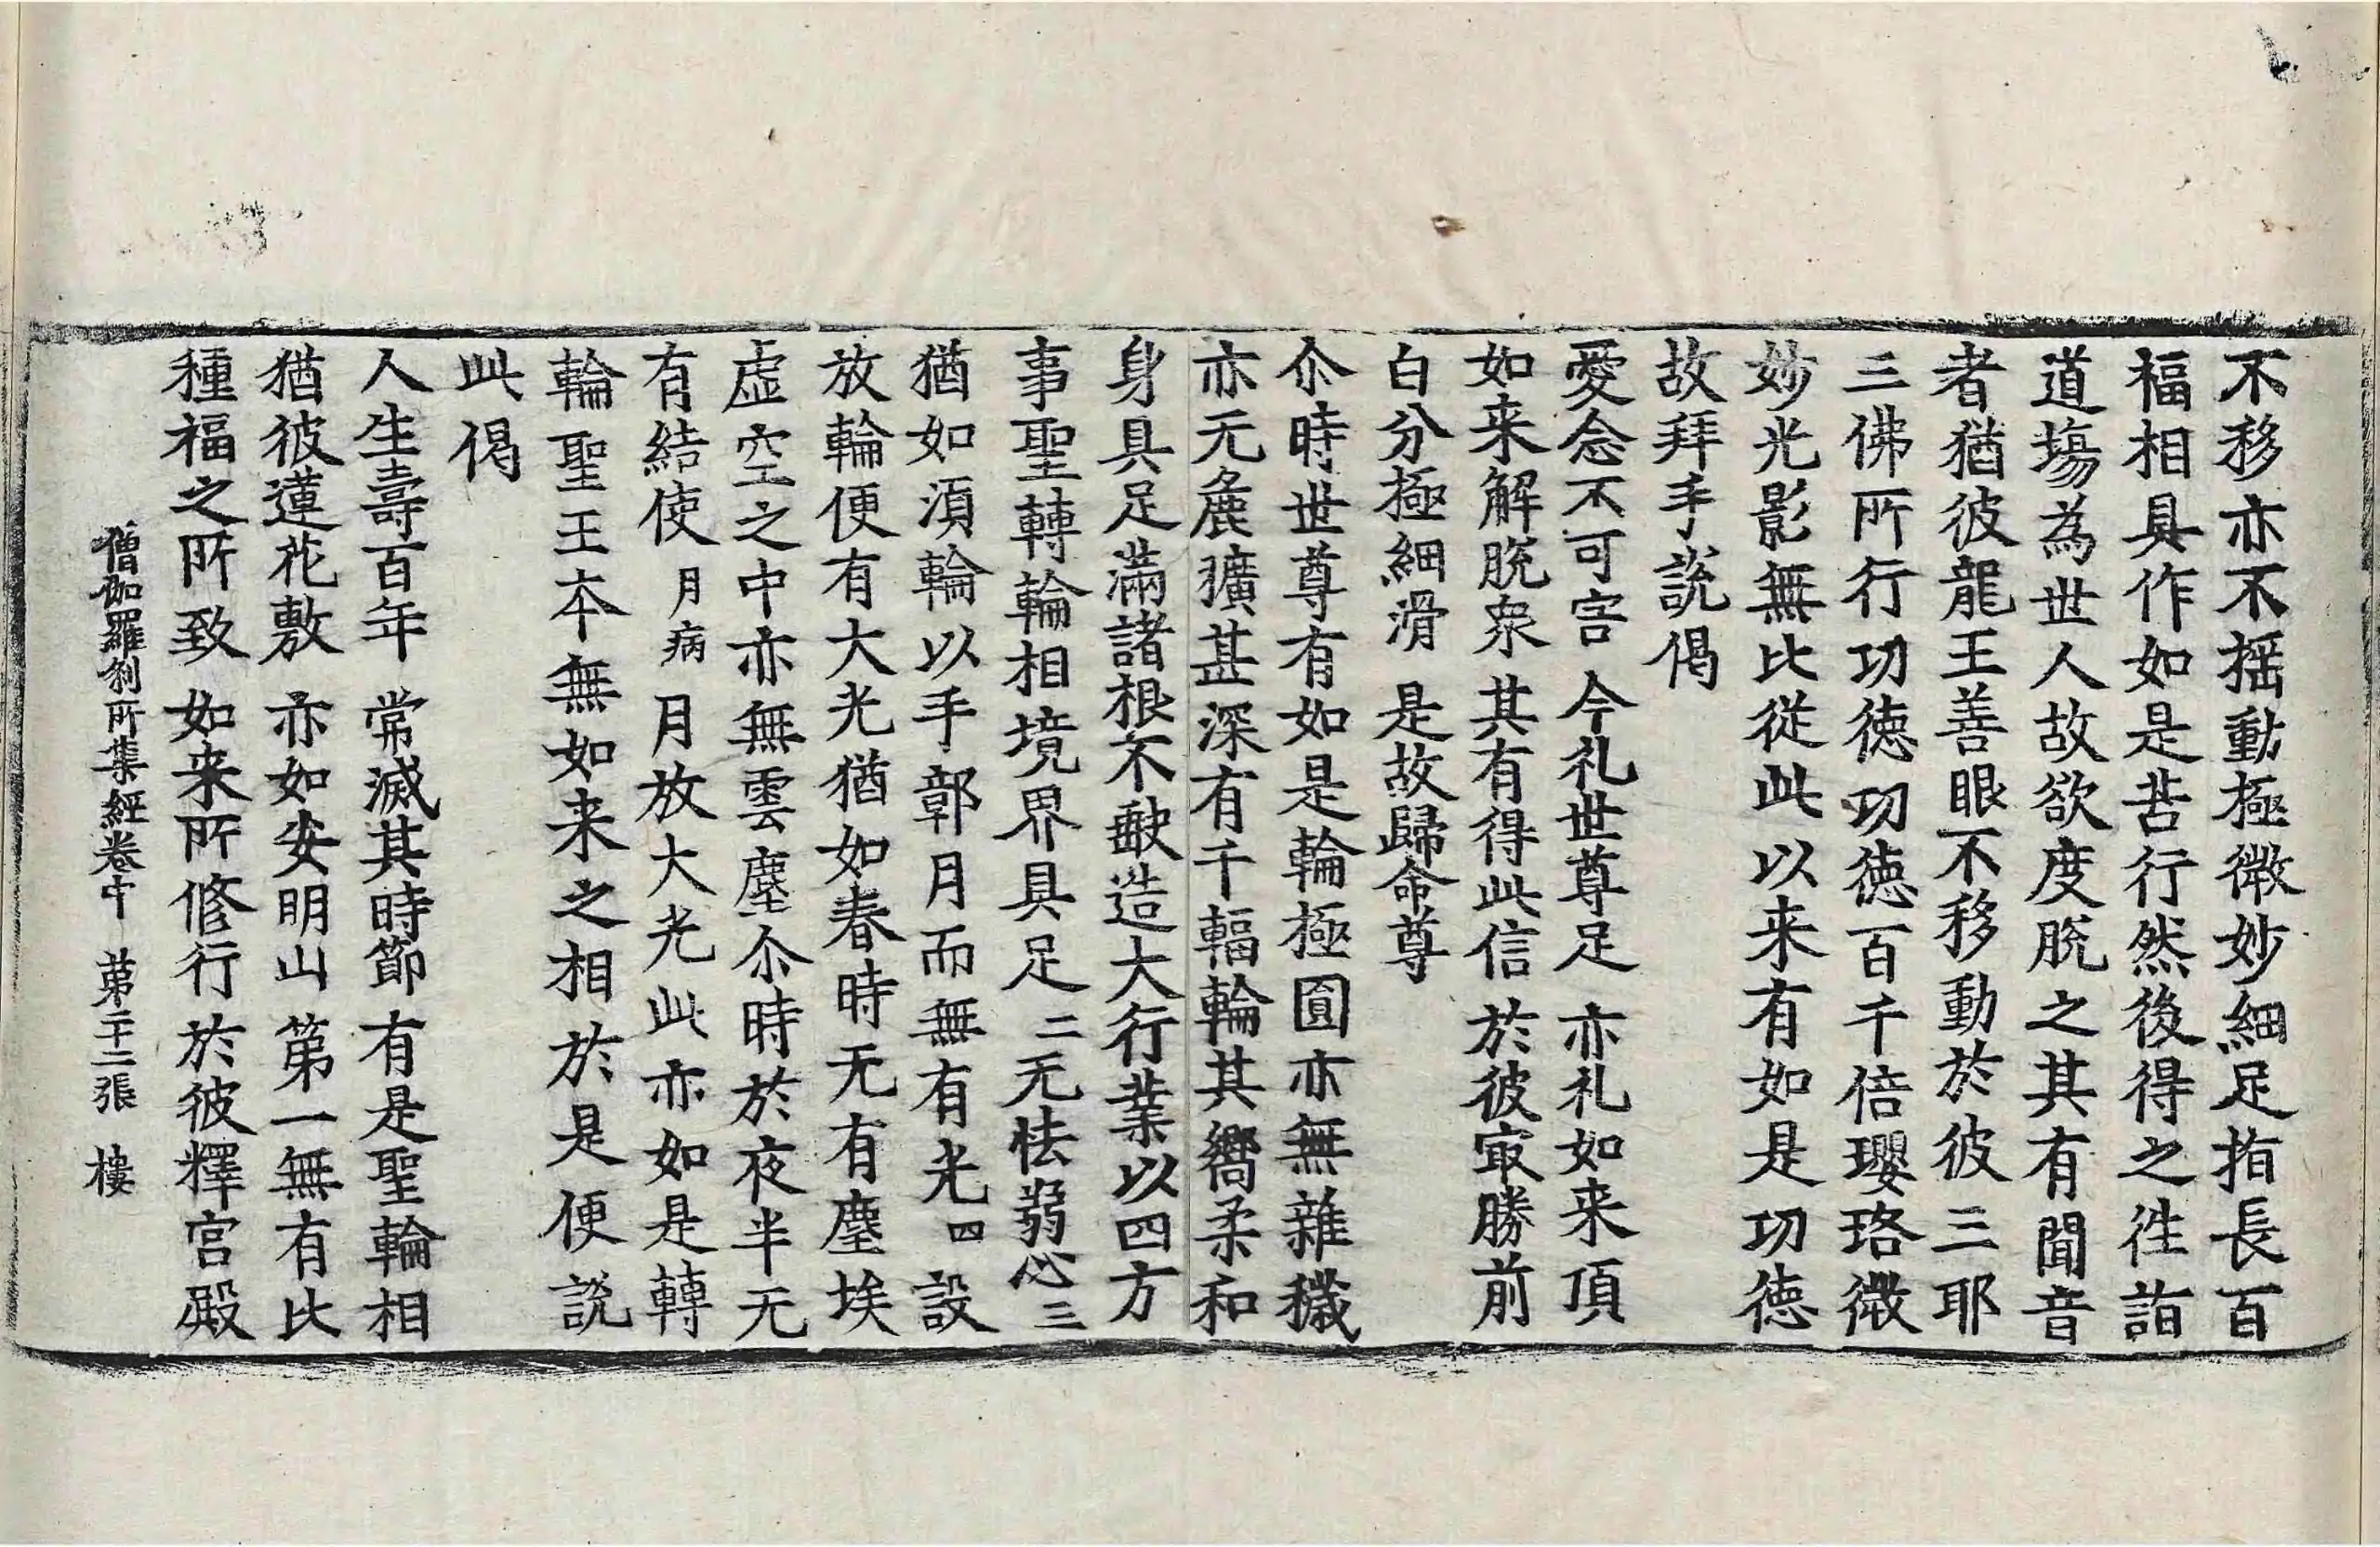 不移亦不揺動極微妙細足指長百
福相具作如是苦行然後得之往詣
道塲為世人故欲度脫之其有聞音
者猶彼龍王善眼不移動於彼三耶
三佛所行功徳功徳百千倍瓔珞微
妙光影無比從此以来有如是功徳
故拜手說偈
愛念不可害　今礼世尊足　亦礼如来頂
如来解脫衆　其有得此信　於彼冣勝前
白分極細滑　是故歸命尊
尒時世尊有如是輪極圓亦無雜穢
亦无麁獷甚深有千輻輪其嚮柔和
身具足滿諸根不缺造大行業以四方
事聖轉輪相境界具足二无怯弱心三
猶如湏輪以手鄣月而無有光四設
放輪便有大光猶如春時无有塵埃
虛空之中亦無雲塵尒時於夜半无
有結使月病月放大光此亦如是轉
輪聖王本無如来之相於是便說
此偈
人生壽百年　常滅其時節　有是聖輪相
猶彼蓮花敷　亦如安明山　第一無有比
種福之所致　如来所修行　於彼釋宮殿
僧伽羅刹所集經卷中　第二十二張　樓